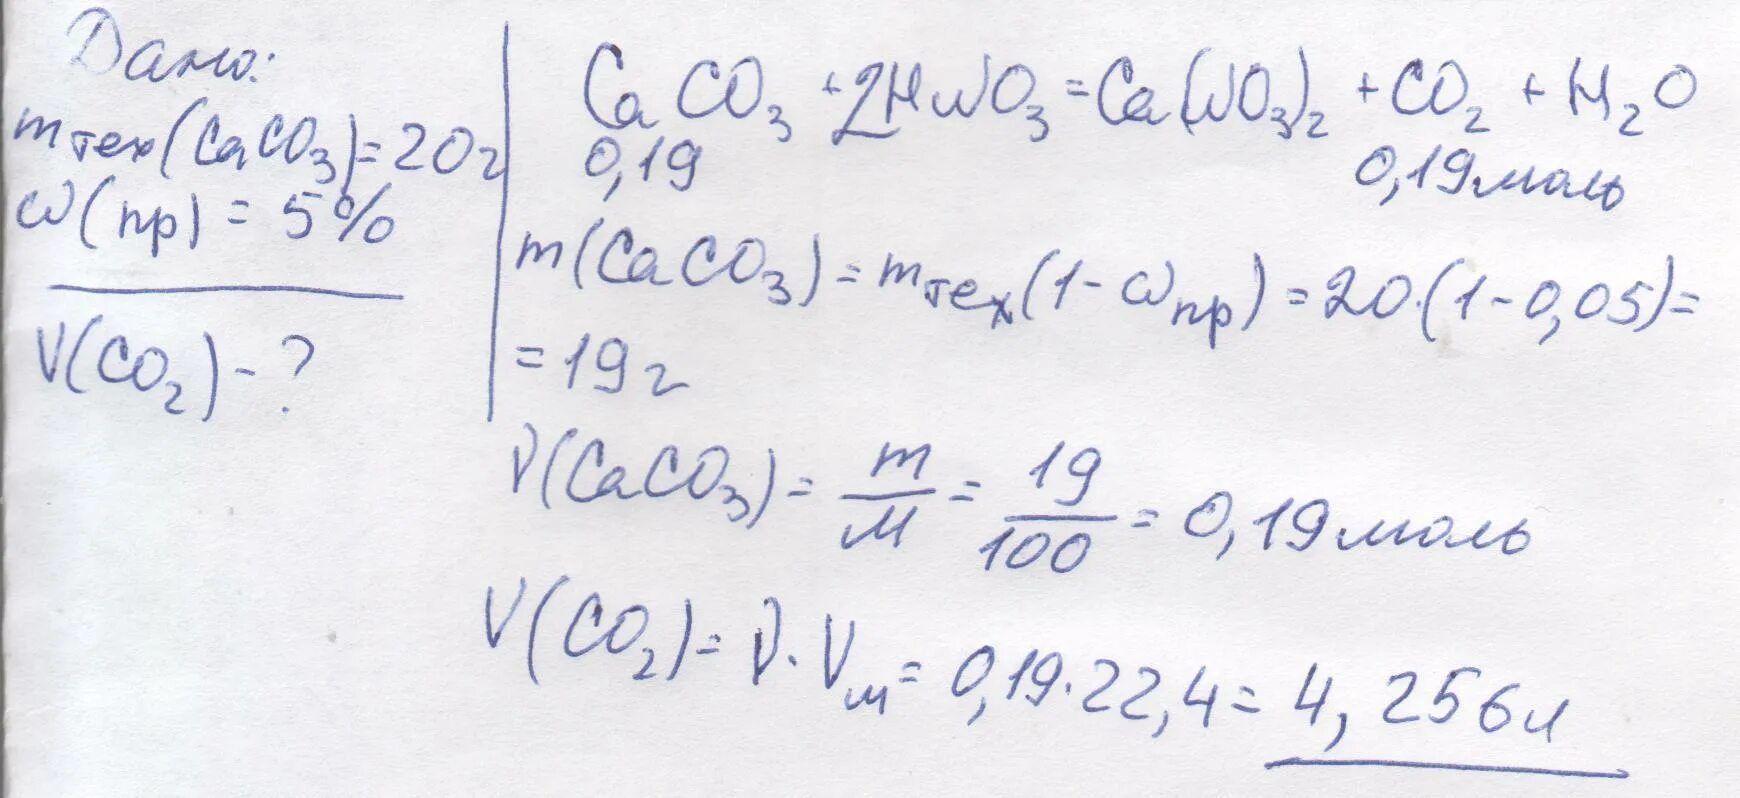 Дано:
mтех(CaCO3)=20г
ω(пр)=5%
V(CO2)-?
CaCO3+2HNO3=Ca(NO3)2+CO2+H2O
0,19 0,19моль
m(CaCO3)=mтех(1-ωпр)=20·(1-0,05)=
=19г
ν(CaCO3)=m/M=19/100=0,19моль
V(CO2)=ν·Vм=0,19·22,4=4,256л